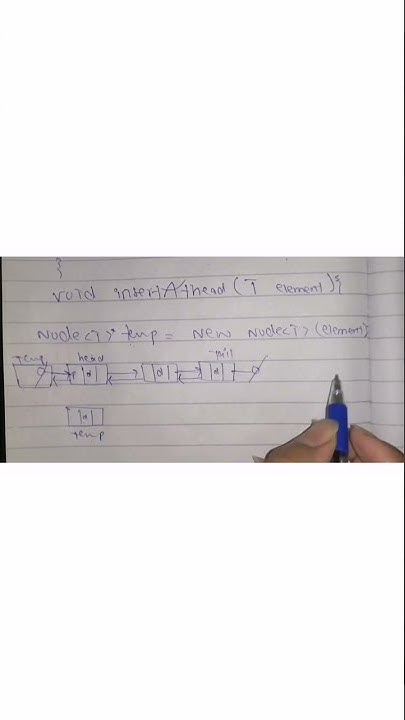 }
void insertAthead(T element){
Node<T>* temp = new Node<T>(element)
temp head tail
d d d
d
temp